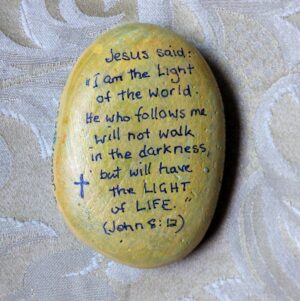 Jesus said:
"I am the Light
of the world.
He who follows me
will not walk
in the darkness,
but will have
the LIGHT
of LIFE."
(John 8:12)